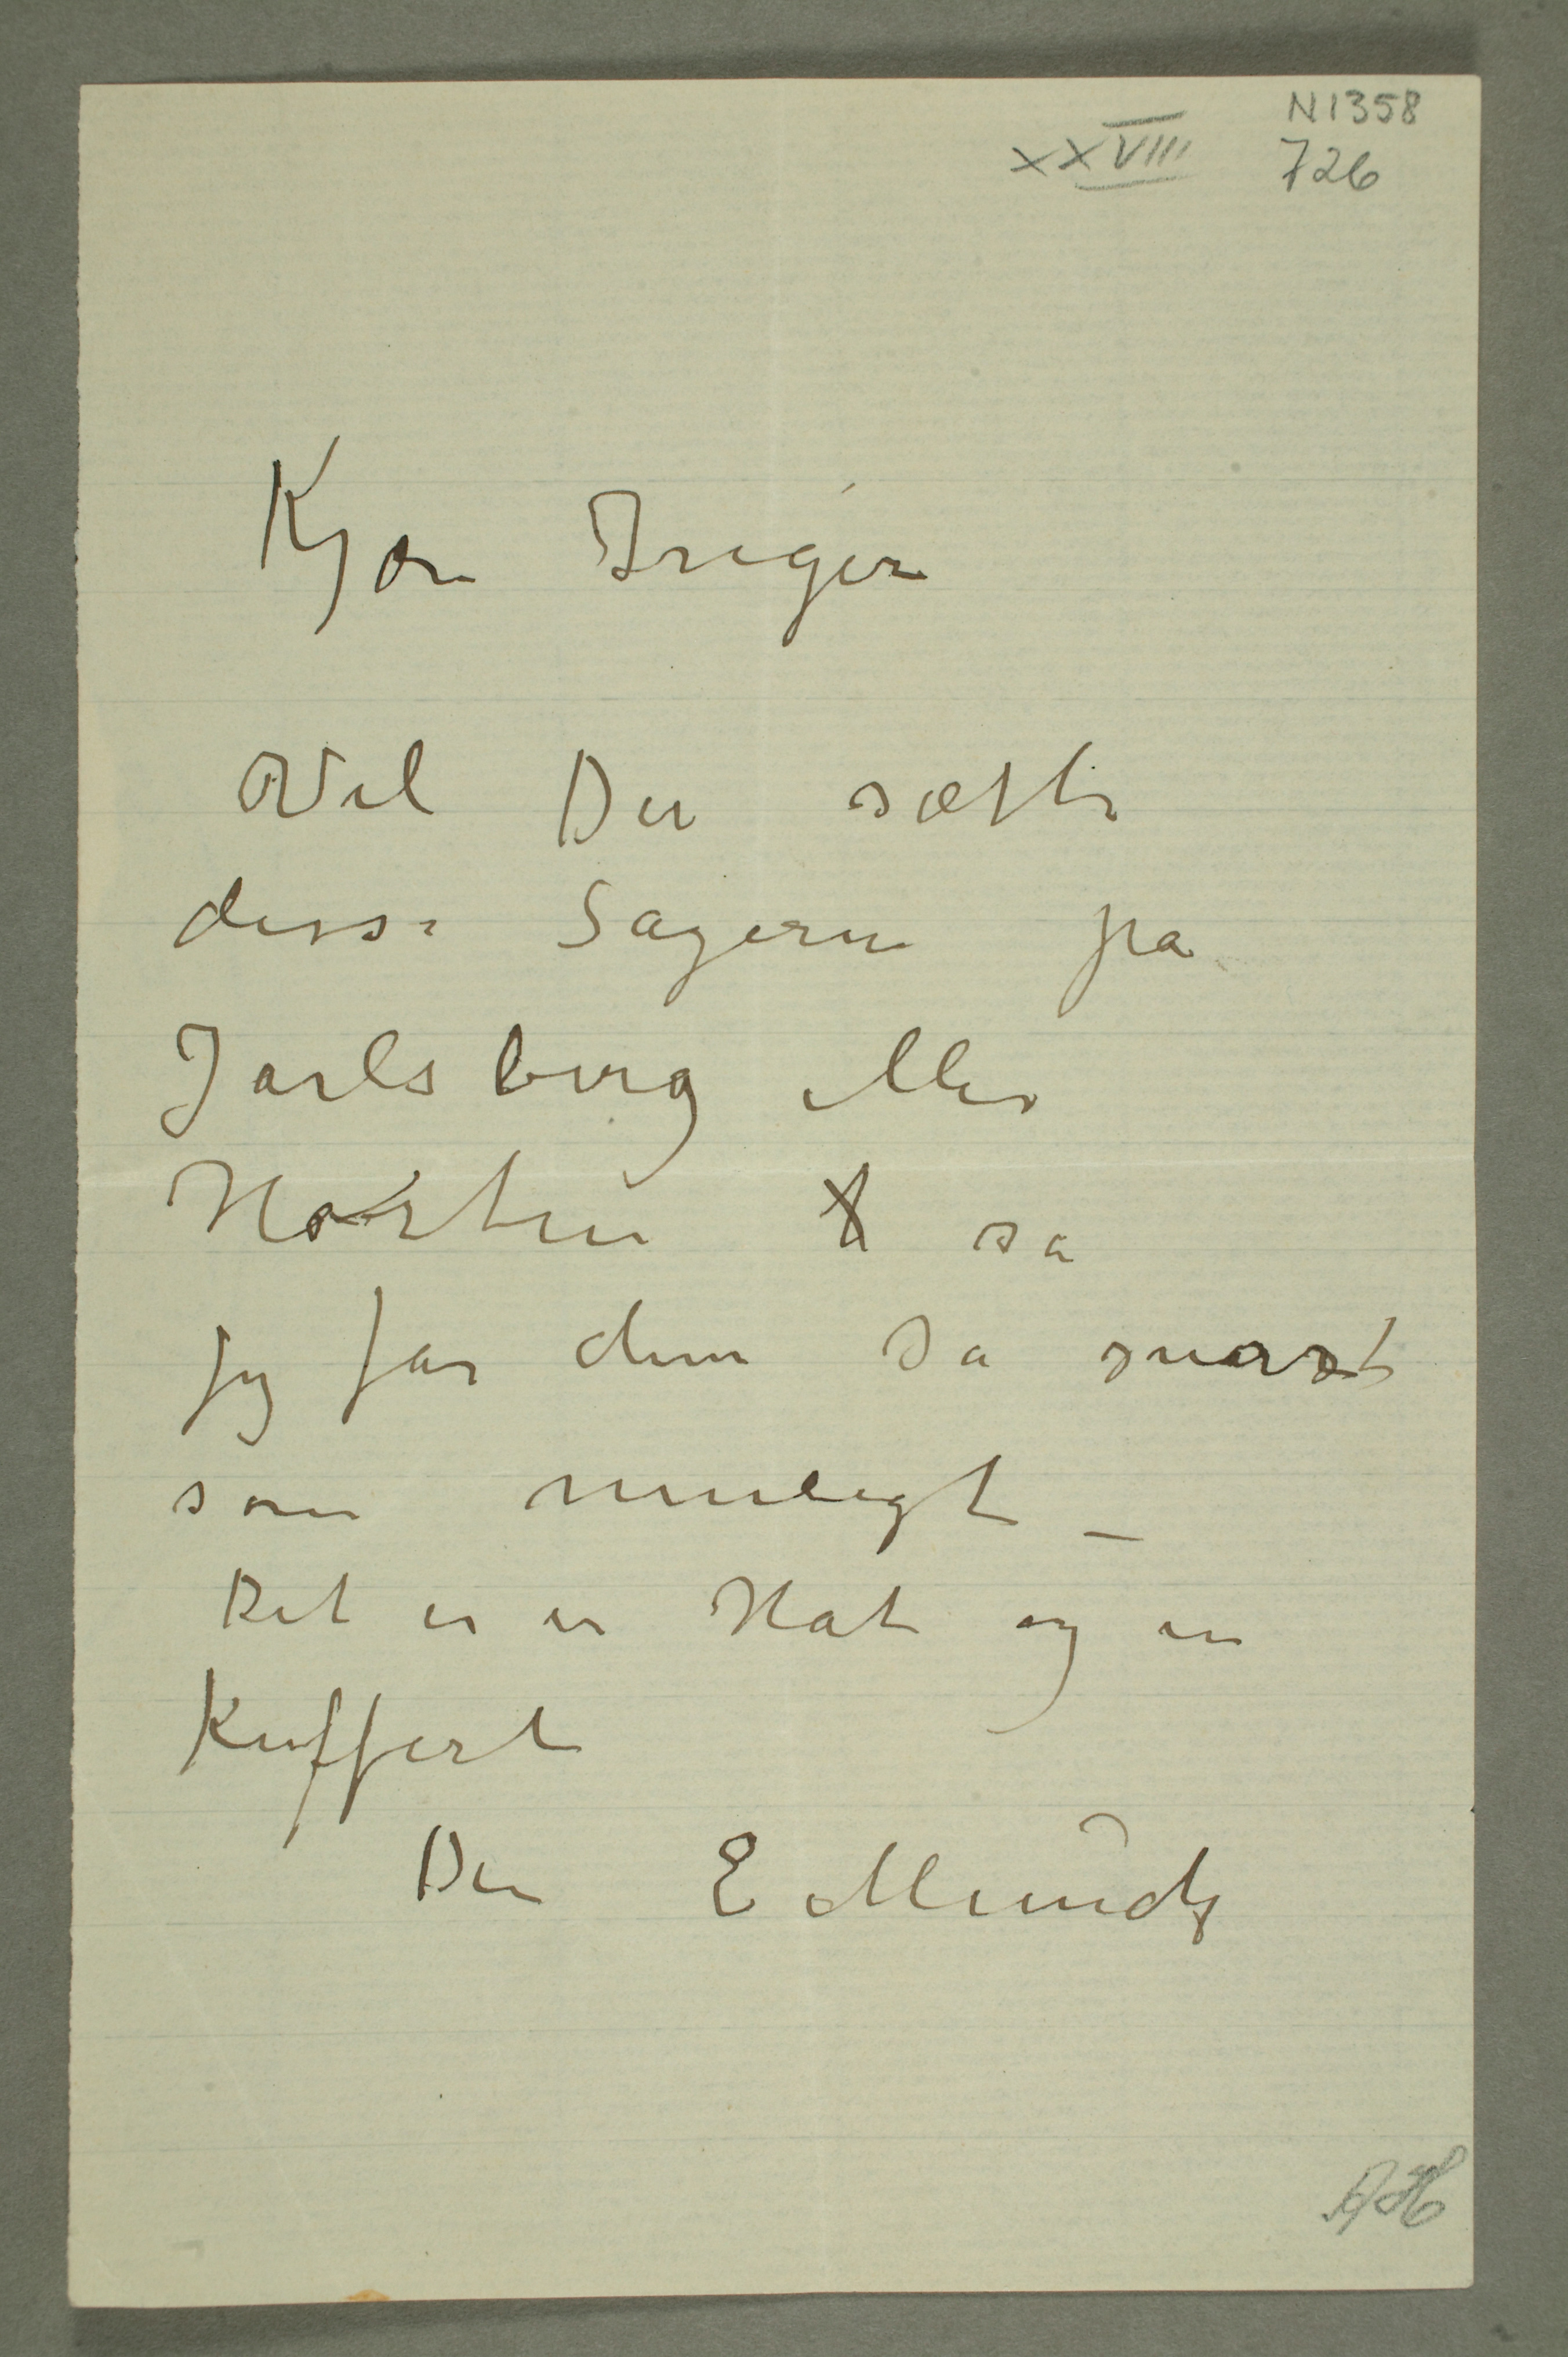 N 1358
XXVIII 726
Kjære Inger
Vil Du sætte
disse Sagerne på
Jarlsberg eller
Horten så
jeg får dem så snarst
som muligt –
Det er en Hat og en
Kuffert
Din E Munch